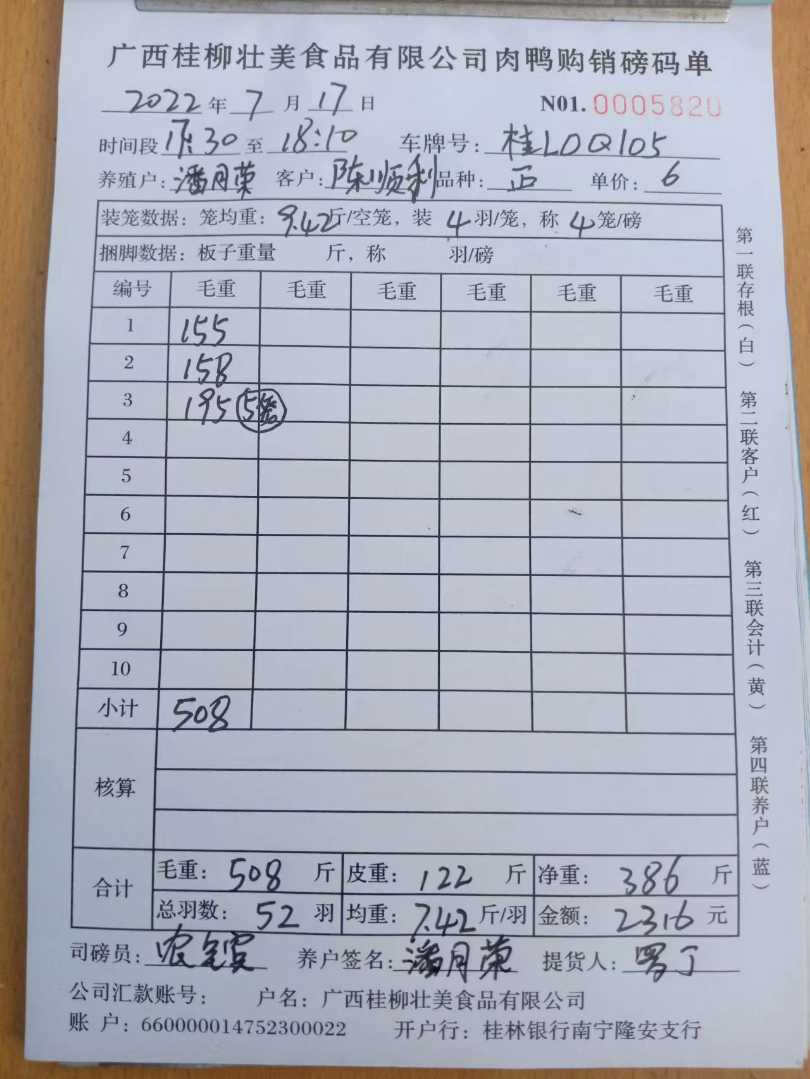 广西桂柳壮美食品有限公司肉鸭购销磅码单
2022年7月17日 N01.0005820
时间段17:30至18:10 车牌号:桂LDQ105
养殖户:潘月荣 客户:陈顺利 品种:正 单价:6
装笼数据:笼均重:9.42斤/空笼,装4羽/笼,称4笼/磅
捆脚数据:板子重量 斤,称 羽/磅
编号 毛重 毛重 毛重 毛重 毛重 毛重
1 155
2 158
3 195 5笼
4
5
6
7
8
9
10
小计 508
核算
合计 毛重:508斤 皮重:122斤 净重:386斤
总羽数:52羽 均重:7.42斤/羽 金额:2316元
司磅员: 养户签名:潘月荣 提货人:
公司汇款账号: 户名:广西桂柳壮美食品有限公司
账 户:660000014752300022 开户行:桂林银行南宁隆安支行
第一联存根(白) 第二联客户(红) 第三联会计(黄) 第四联养户(蓝)